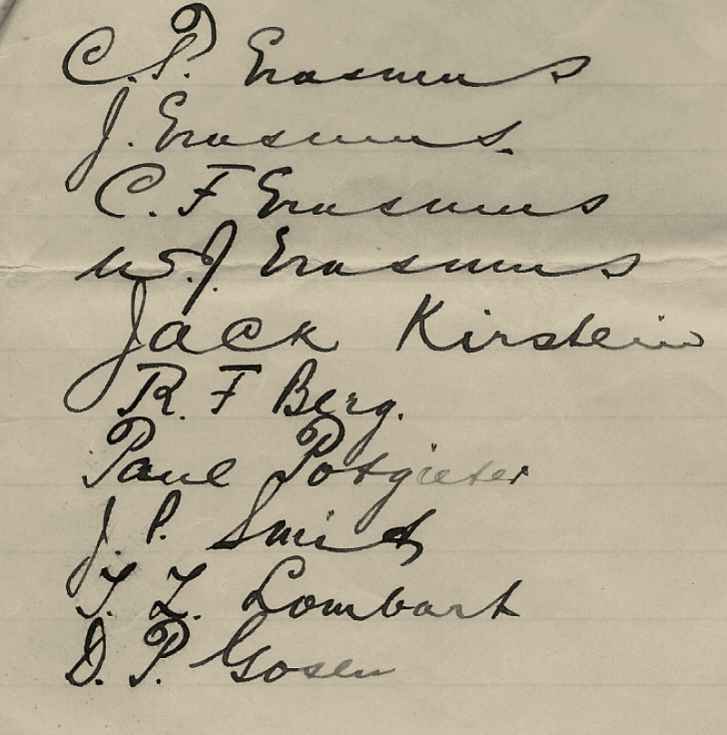 C. P. Erasmus
J. Erasmus.
C. F Erasmus
W. J. Erasmus
Jack Kirstein
R. F Berg.
Paul Potgieter
J. P. Smid
T. Z. Lombart
D. P. Gosen